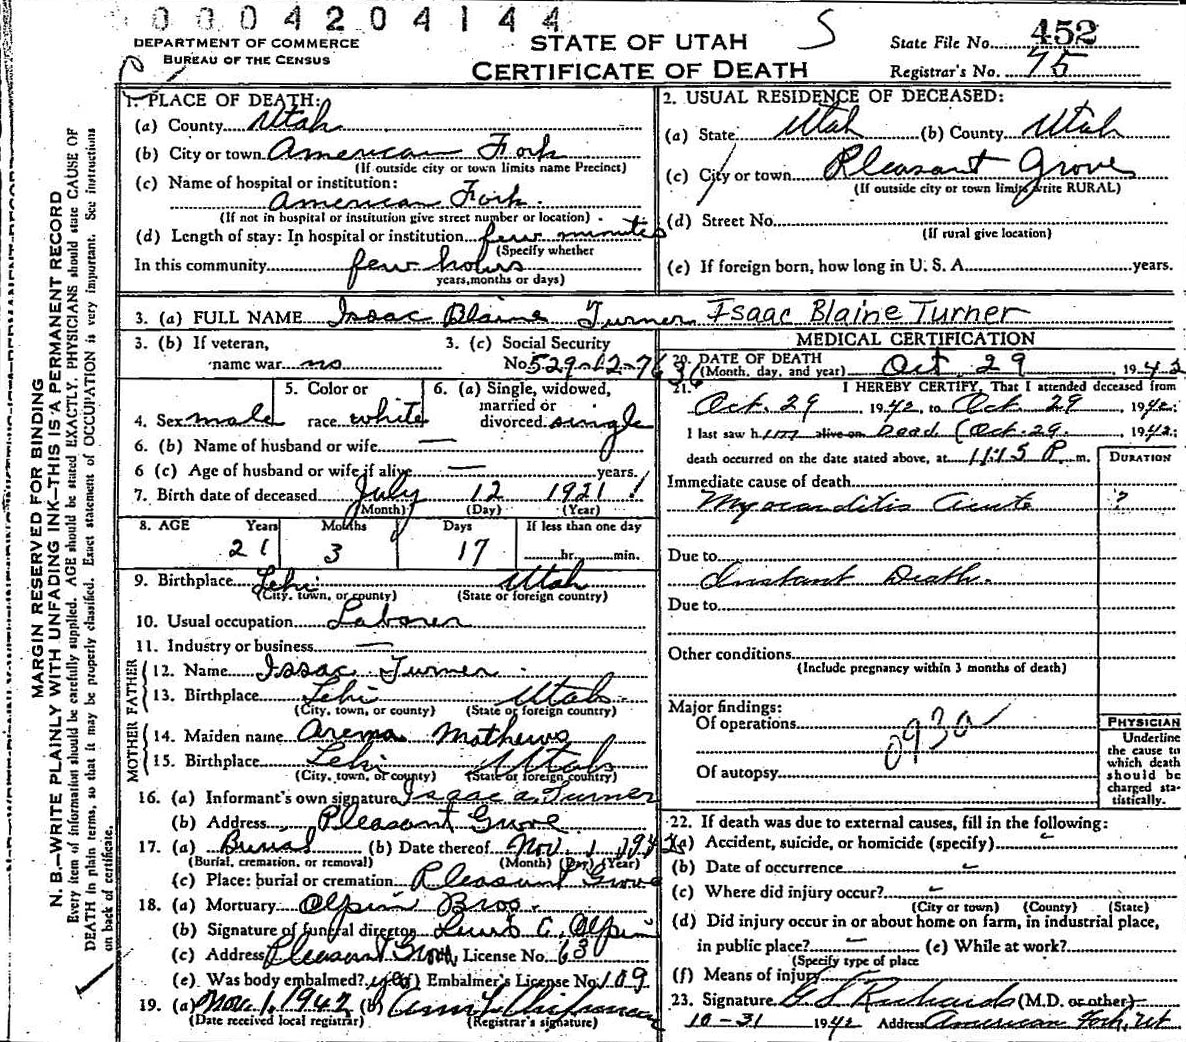 0004204144
DEPARTMENT OF COMMERCE
BUREAU OF THE CENSUS
STATE OF UTAH
CERTIFICATE OF DEATH
S
State File No. 452
Registrar's No. 75
MARGIN RESERVED FOR BINDING
N. B.—WRITE PLAINLY WITH UNFADING INK—THIS IS A PERMANENT RECORD
Every item of information should be carefully supplied. AGE should be stated EXACTLY. PHYSICIANS should state CAUSE OF
DEATH in plain terms, so that it may be properly classified. Exact statement of OCCUPATION is very important. See instructions
on back of certificate.
1. PLACE OF DEATH:
(a) County Utah
(b) City or town American Fork
(If outside city or town limits name Precinct)
(c) Name of hospital or institution:
American Fork.
(If not in hospital or institution give street number or location)
(d) Length of stay: In hospital or institution few minutes
(Specify whether
In this community few hours
years, months or days)
2. USUAL RESIDENCE OF DECEASED:
(a) State Utah (b) County Utah
(c) City or town Pleasant Grove
(If outside city or town limits write RURAL)
(d) Street No.
(If rural give location)
(e) If foreign born, how long in U. S. A. years.
3. (a) FULL NAME Isaac Blaine Turner Isaac Blaine Turner
3. (b) If veteran,
name war no
3. (c) Social Security
No. 529-12-7636
5. Color or
4. Sex male race white
6. (a) Single, widowed,
married or
divorced single
6. (b) Name of husband or wife —
6 (c) Age of husband or wife if alive — years.
7. Birth date of deceased July 12 1921
(Month) (Day) (Year)
8. AGE Years Months Days If less than one day
21 3 17 hr. min.
9. Birthplace Lehi Utah
(City, town, or county) (State or foreign country)
10. Usual occupation Laborer
11. Industry or business —
FATHER
12. Name Issac Turner
13. Birthplace Lehi Utah
(City, town, or county) (State or foreign country)
MOTHER
14. Maiden name Arema Mathews
15. Birthplace Lehi Utah
(City, town, or county) (State or foreign country)
16. (a) Informant's own signature Isaac A. Turner
(b) Address Pleasant Grove
17. (a) Burial (b) Date thereof Nov. 1 1942
(Burial, cremation, or removal) (Month) (Day) (Year)
(c) Place: burial or cremation Pleasant Grove
18. (a) Mortuary Olpin Bros.
(b) Signature of funeral director Olpin
(c) Address Pleasant Grove, License No. 63
(e) Was body embalmed? yes (f) Embalmer's License No. 109
19. (a) Nov. 1, 1942 (b)
(Date received local registrar) (Registrar's signature)
MEDICAL CERTIFICATION
20. DATE OF DEATH
(Month, day, and year) Oct 29, 1942
21. I HEREBY CERTIFY, That I attended deceased from
Oct. 29 1942, to Oct. 29 1942;
I last saw him alive on Dead (Oct. 29. 1942;
death occurred on the date stated above, at 11:15 P. m.
DURATION
Immediate cause of death
Myocarditis Acute ?
Due to
Instant Death.
Due to
Other conditions
(Include pregnancy within 3 months of death)
Major findings:
Of operations
0930
Of autopsy
PHYSICIAN
Underline
the cause to
which death
should be
charged sta-
tistically.
22. If death was due to external causes, fill in the following:
(a) Accident, suicide, or homicide (specify)
(b) Date of occurrence
(c) Where did injury occur?
(City or town) (County) (State)
(d) Did injury occur in or about home on farm, in industrial place,
in public place? — (e) While at work?
(Specify type of place
(f) Means of injury
23. Signature Richards (M.D. or other)
10-31 1942 Address American Fork, Ut